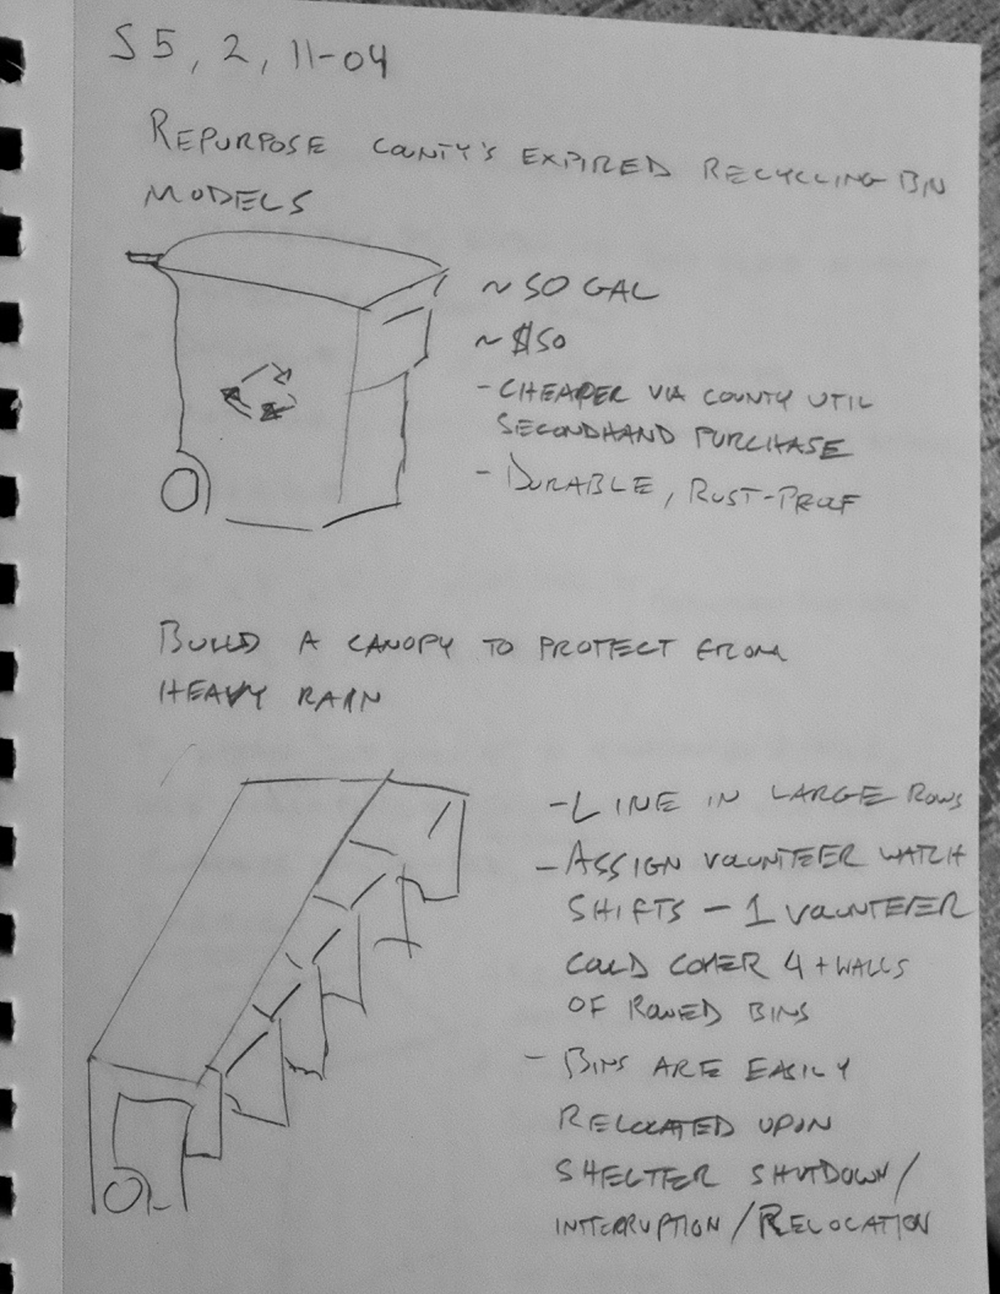 S5, 2, 11-04
REPURPOSE COUNTY'S EXPIRED RECYCLING BIN
MODELS
~ 50 GAL
~ $50
- CHEAPER VIA COUNTY UTIL
SECONDHAND PURCHASE
- DURABLE, RUST-PROOF
BUILD A CANOPY TO PROTECT FROM
HEAVY RAIN
- LINE IN LARGE ROWS
- ASSIGN VOLUNTEER WATCH
SHIFTS - 1 VOLUNTEER
COULD COVER 4+ WALLS
OF ROWED BINS
- BINS ARE EASILY
RELOCATED UPON
SHELTER SHUTDOWN/
INTERRUPTION/RELOCATION